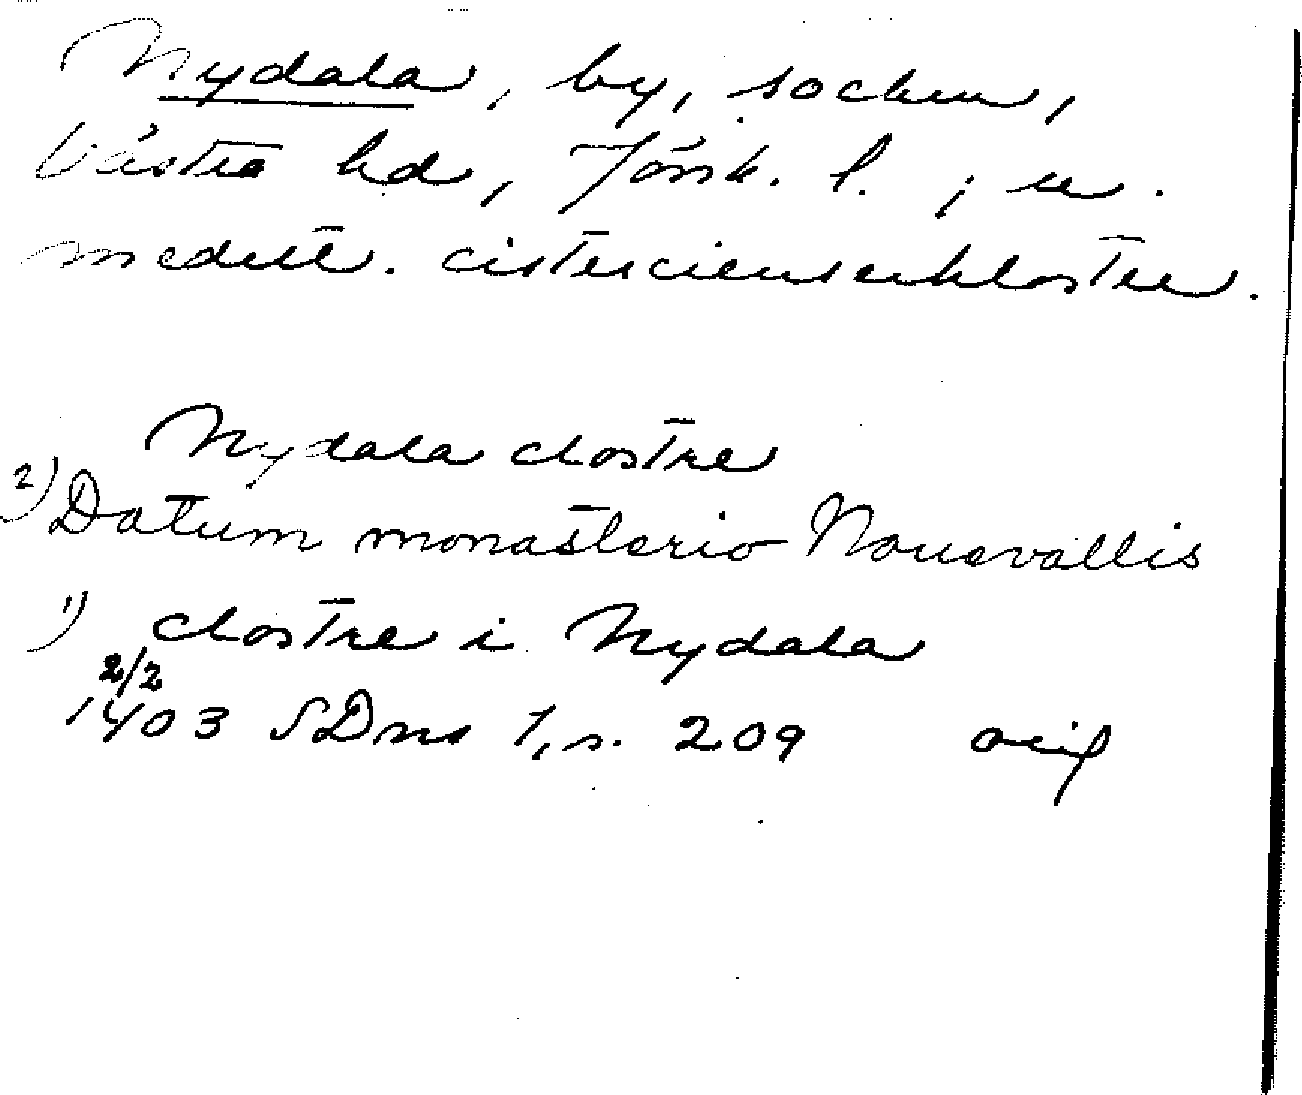 Nydala, by, socken,
Västra hd, Jönk. l. ; u.
medelt. cistercienserkloster.
Nydala clostre
2) Datum monasterio Nouevallis
1) clostre i Nydala
2/2
1403 SDns 1, s. 209 orig